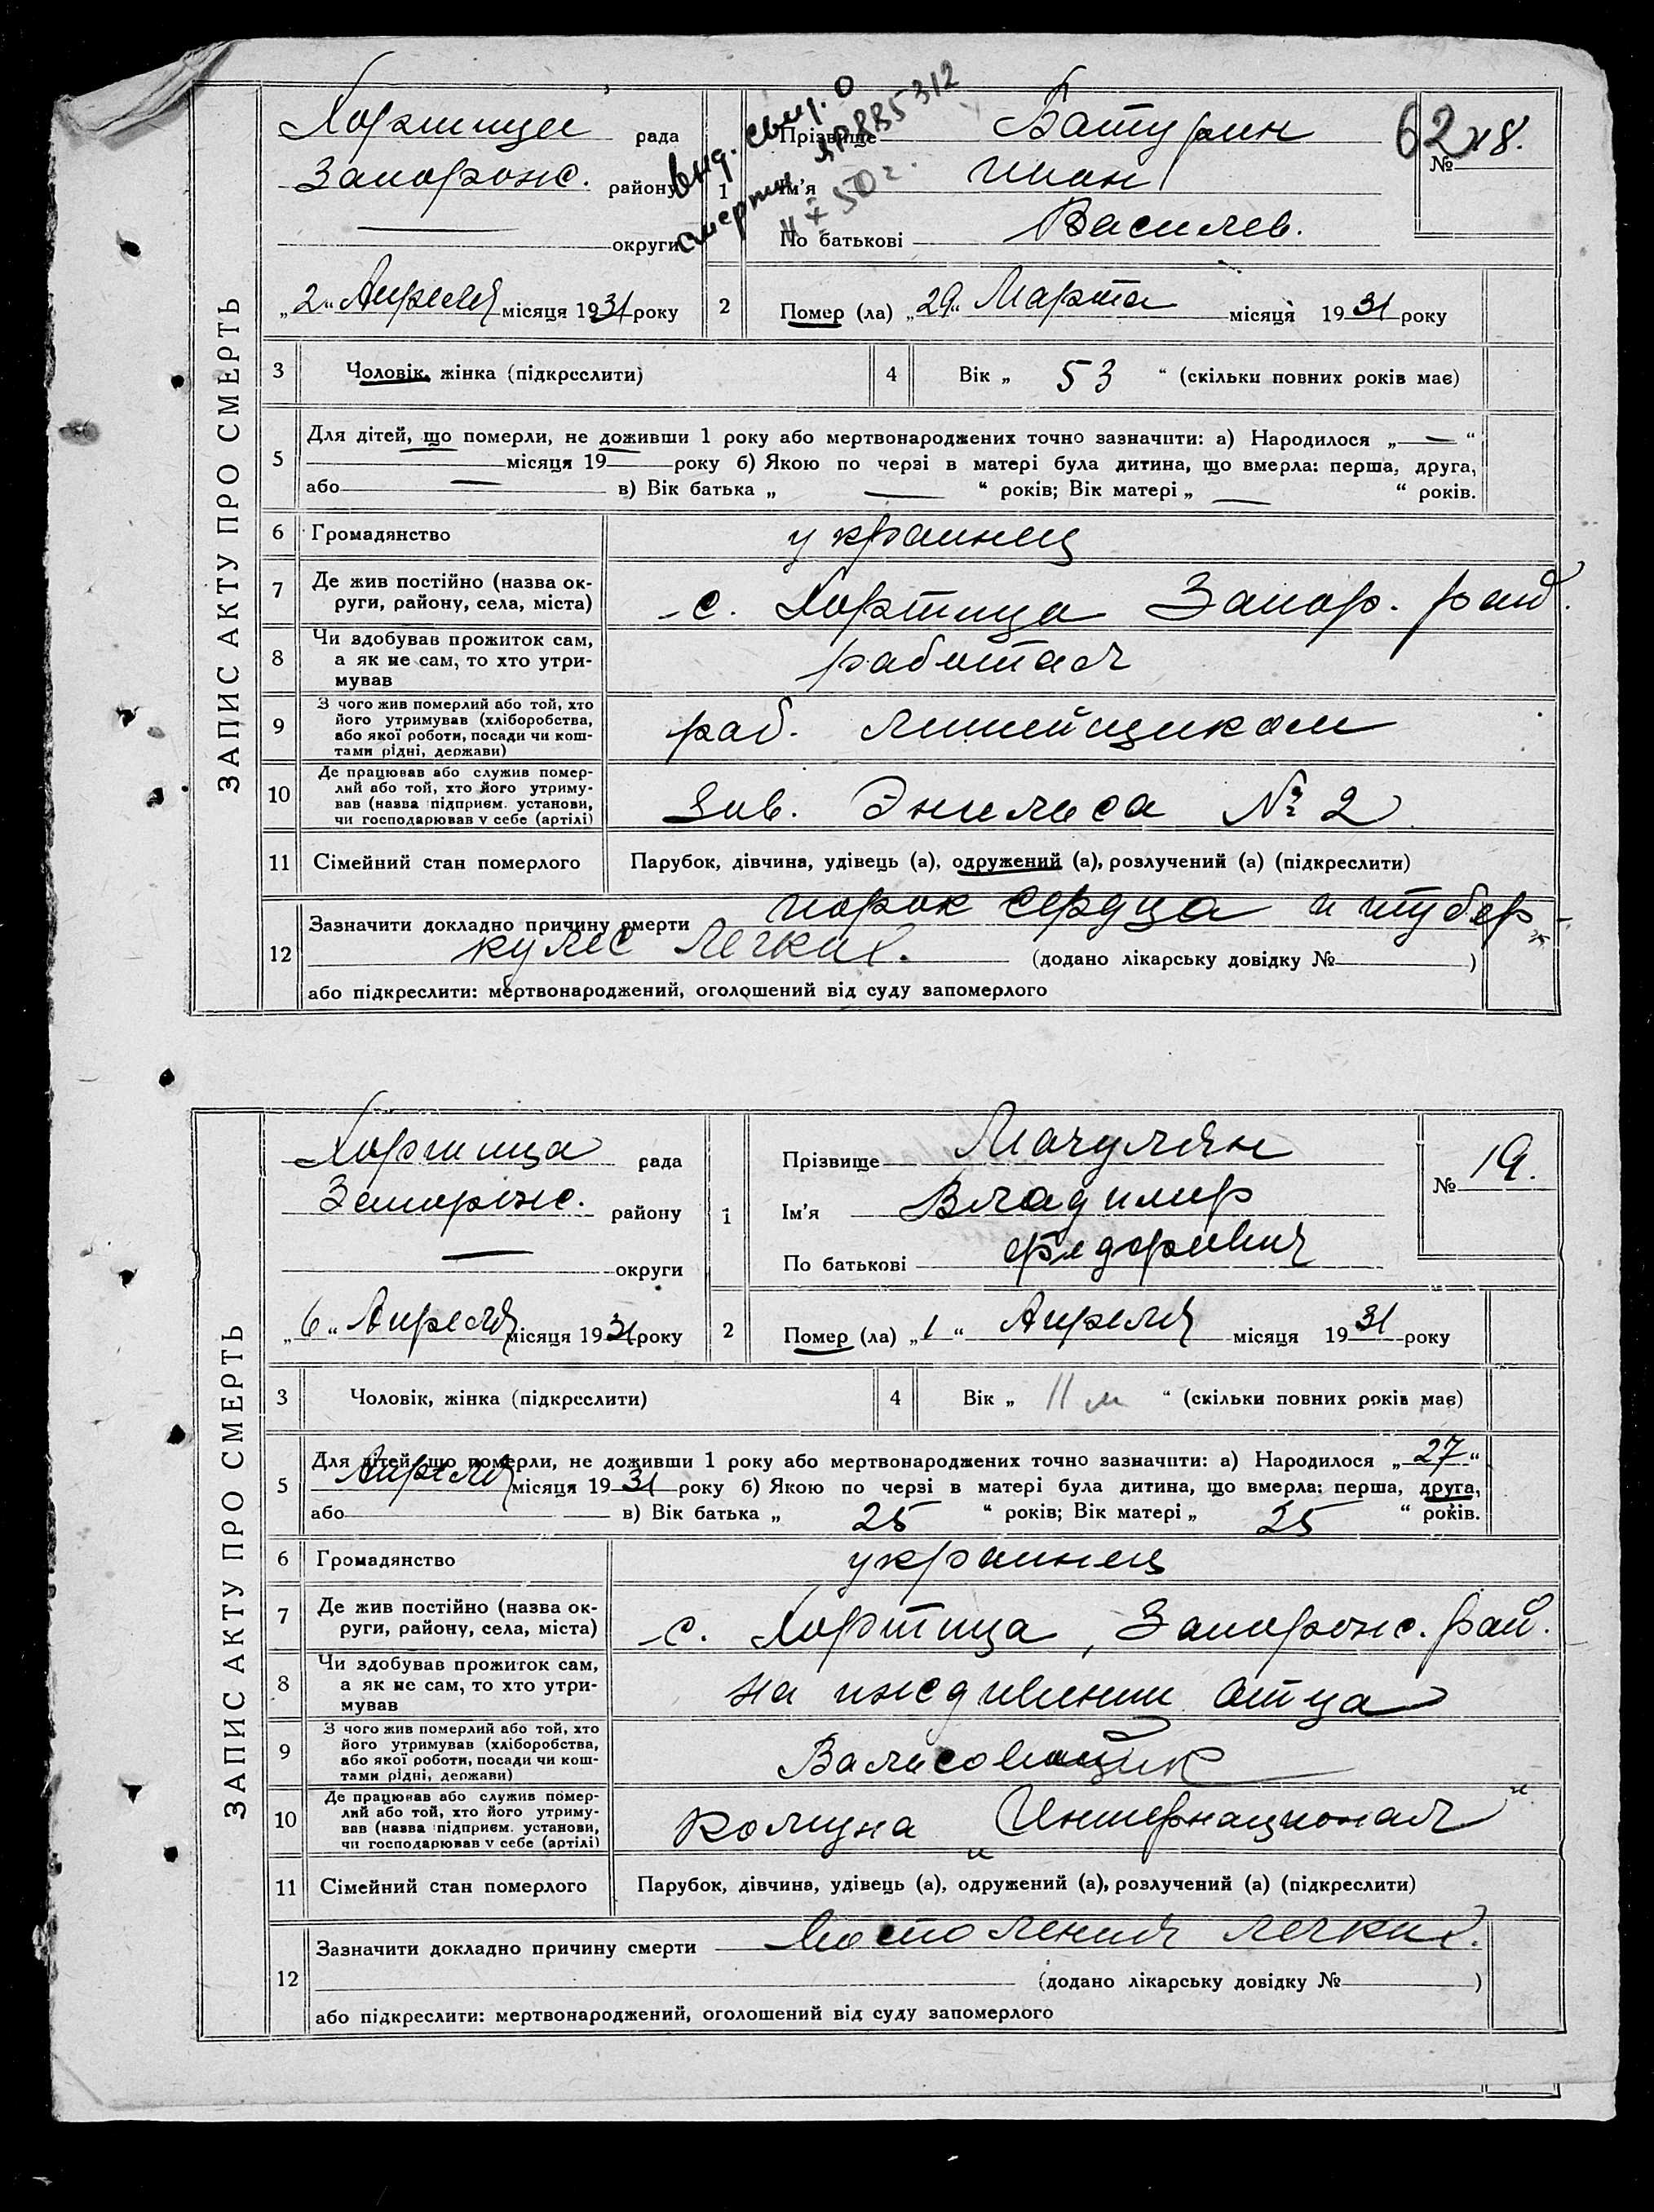 ЗАПИС АКТУ ПРО СМЕРТЬ
Хортица рада
Запорож. району
округи
„2“ Апреля місяця 1931 року
вид. свид. о
смерти
50 г.
1
Прізвище Батурин
Ім’я Иван
По батькові Василев.
62
№ 18.
2 Помер (ла) „29“ Марта місяця 1931 року
3 Чоловік, жінка (підкреслити)
4 Вік „ 53 “ (скільки повних років має)
5 Для дітей, що померли, не доживши 1 року або мертвонароджених точно зазначити: а) Народилося „—“
місяця 19— року б) Якою по черзі в матері була дитина, що вмерла: перша, друга,
або — в) Вік батька „ — “ років; Вік матері „ — “ років.
6 Громадянство украинец
7 Де жив постійно (назва ок-
руги, району, села, міста) с. Хортица Запор. рай.
8 Чи здобував прожиток сам,
а як не сам, то хто утри-
мував работал
9 З чого жив померлий або той, хто
його утримував (хліборобства,
або якої роботи, посади чи кош-
тами рідні, держави) раб. линейщиком
10 Де працював або служив помер-
лий або той, хто його утриму-
вав (назва підприєм. установи,
чи господарював у себе (артілі) Зав. Энгельса № 2
11 Сімейний стан померлого Парубок, дівчина, удівець (а), одружений (а), розлучений (а) (підкреслити)
12 Зазначити докладно причину смерти порок сердца и тубер-
кулес легких.
(додано лікарську довідку № )
або підкреслити: мертвонароджений, оголошений від суду запомерлого
ЗАПИС АКТУ ПРО СМЕРТЬ
Хортица рада
Запорож. району
округи
„6“ Апреля місяця 1931 року
1
Прізвище Мачулян
Ім’я Владимир
По батькові Федорович
№ 19.
2 Помер (ла) „1“ Апреля місяця 1931 року
3 Чоловік, жінка (підкреслити)
4 Вік „ 11 м “ (скільки повних років має)
5 Для дітей, що померли, не доживши 1 року або мертвонароджених точно зазначити: а) Народилося „27“
Апреля місяця 1931 року б) Якою по черзі в матері була дитина, що вмерла: перша, друга,
або — в) Вік батька „ 25 “ років; Вік матері „ 25 “ років.
6 Громадянство украинец
7 Де жив постійно (назва ок-
руги, району, села, міста) с. Хортица, Запорож. рай.
8 Чи здобував прожиток сам,
а як не сам, то хто утри-
мував на иждивении отца
9 З чого жив померлий або той, хто
його утримував (хліборобства,
або якої роботи, посади чи кош-
тами рідні, держави) Вальсовщик
10 Де працював або служив помер-
лий або той, хто його утриму-
вав (назва підприєм. установи,
чи господарював у себе (артілі) Комуна „Интернационал“
11 Сімейний стан померлого Парубок, дівчина, удівець (а), одружений (а), розлучений (а) (підкреслити)
12 Зазначити докладно причину смерти Восполения легких.
(додано лікарську довідку № )
або підкреслити: мертвонароджений, оголошений від суду запомерлого